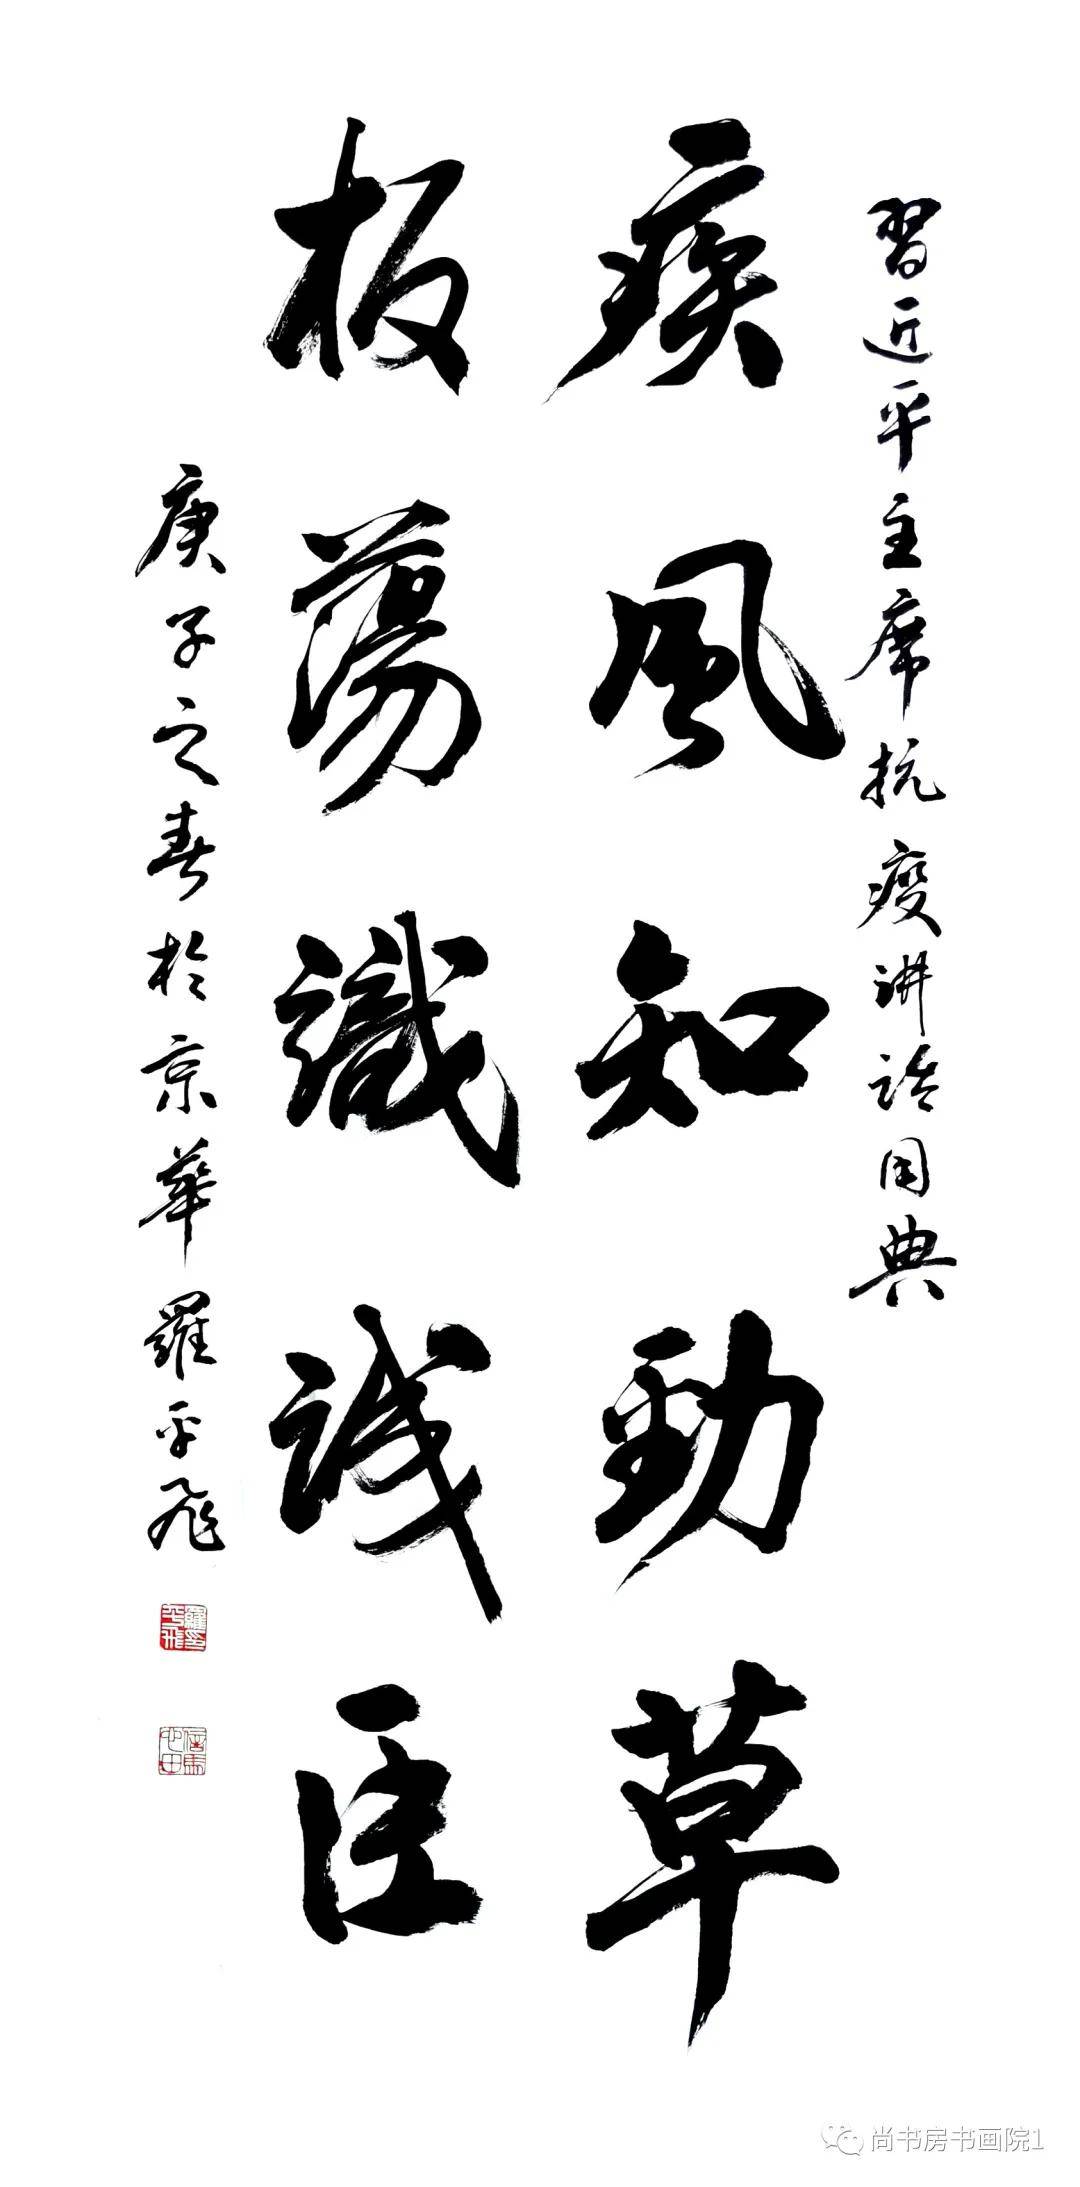 習近平主席抗疫讲话用典
疾風知勁草
板蕩識誠臣
庚子之春於京華羅平飛
羅印平飛
尚书房书画院1